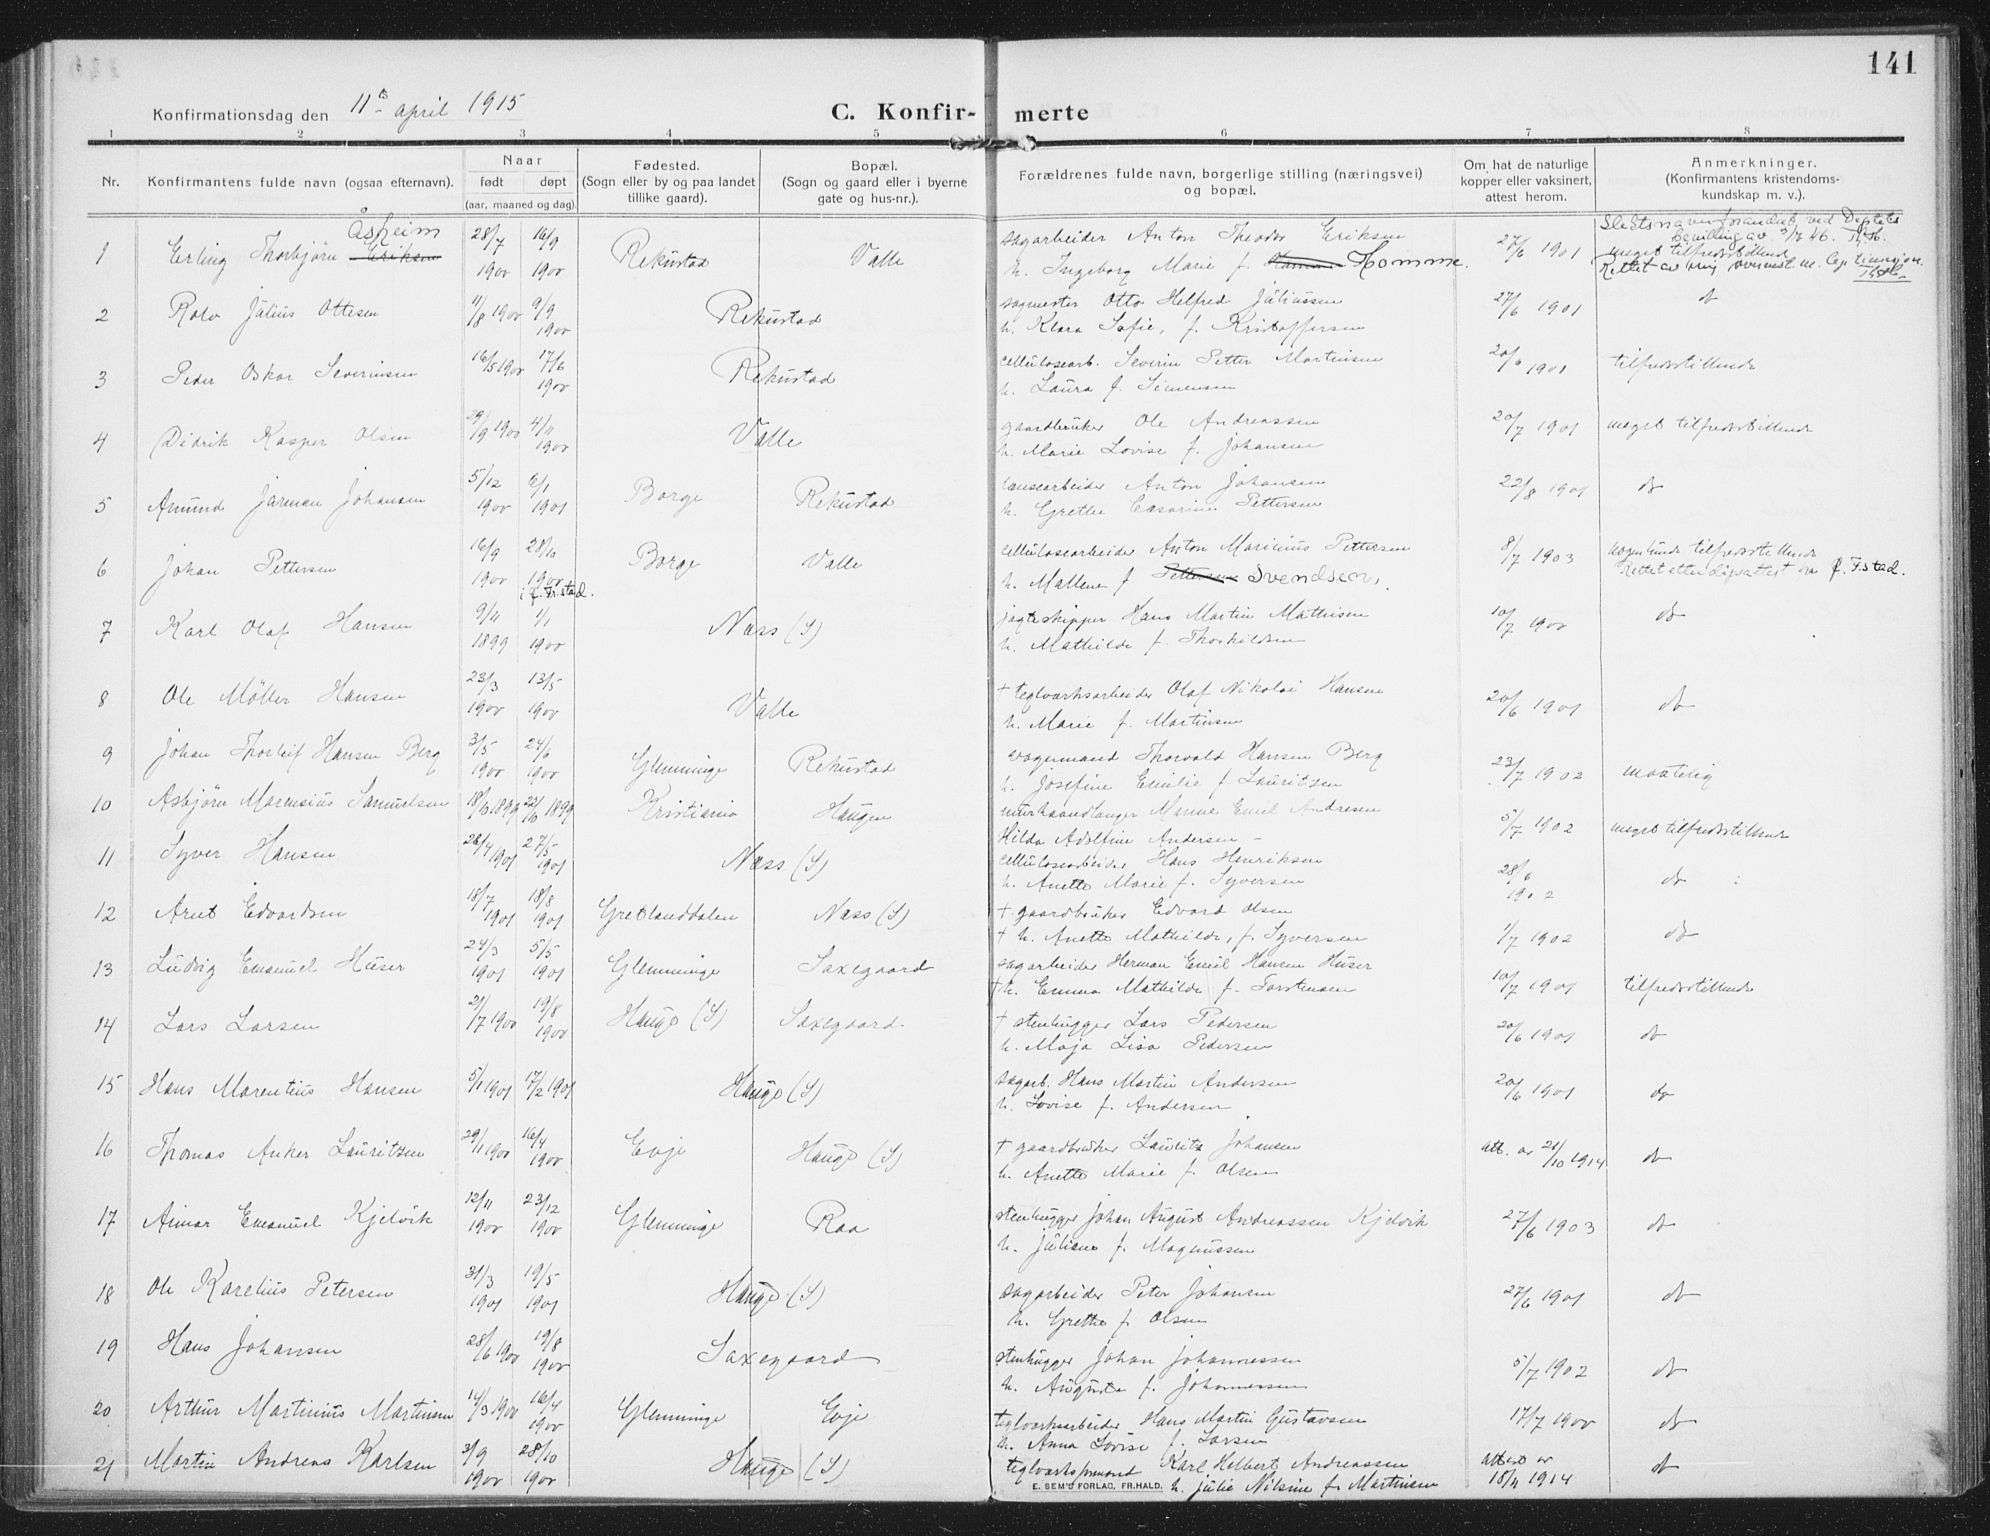 141
Konfirmationsdag den 11te april 1915
C. Konfir- merte
1 2 3 4 5 6 7 8
Nr. Konfirmantens fulde navn (ogsaa efternavn). Naar født døpt (aar, maaned og dag). Fødested. (Sogn eller by og paa landet tillike gaard). Bopæl. (Sogn og gaard eller i byerne gate og hus-nr.). Forældrenes fulde navn, borgerlige stilling (næringsvei) og bopæl. Om hat de naturlige kopper eller vaksinert, attest herom. Anmerkninger. (Konfirmantens kristendoms- kundskap m. v.).
Åsheim
1 Erling Thorbjörn Eriksen 28/7 1900 16/9 1900 Rekustad Valle sagarbeider Anton Theodor Eriksen
h. Ingeborg Marie f. Homme. 27/6 1901 meget tilfredsstillende
2 Rolv Julius Ottesen 11/8 1900 9/9 1900 Rekustad sagmester Otto Helfred Juliussen
h. Klara Sofie, f. Kristoffersen 27/6 1901 do
3 Peder Oskar Severinsen 16/5 1900 17/6 1900 Rekustad cellulosearb. Severin Petter Martinsen
h. Laura f. Simensen 20/6 1901 tilfredsstillende
4 Didrik Kasper Olsen 29/9 1900 4/11 1900 Valle gaardbruker Ole Andreassen
h. Marie Lovise f. Johansen 20/7 1901 meget tilfredsstillende
5 Amund Jarman Johansen 5/12 1900 6/1 1901 Borge Rekustad lensearbeider Anton Johansen
h. Grethe Casarine Pettersen 22/8 1901 do
6 Johan Pettersen 16/9 1900 28/10 1900 i f. Fr.stad. Borge Valle cellulosearbeider Anton Maricius Pettersen
h. Mallene f. Pettersen Svendsen. 8/7 1903 nogenlunde tilfredsstillende
Rettet efter dåpsattest fra f. F.stad.
7 Karl Olaf Hansen 9/11 1899 1/1 1900 Næss (S) jagteskipper Hans Martin Mathisen
h. Mathilde f. Thorkildsen 10/7 1900 do
8 Ole Möller Hansen 23/3 1900 13/5 1900 Valle † teglværksarbeider Olaf Nikolai Hansen
h. Marie f. Martinsen 20/6 1901 do
9 Johan Thorleif Hansen Berg 3/5 1900 24/6 1900 Glemminge Rekustad vognmand Thorvald Hansen Berg
h. Josefine Emilie f. Lauritsen 23/7 1902 maatelig
10 Asbjörn Marensius Samuelsen 18/6 1899 22/10 1899 Kristiania Haugen murhaandlanger Manne Emil Andresen
Hilda Adolfine Andersen - 5/7 1902 meget tilfredsstillende
11 Syver Hansen 26/4 1901 27/5 1901 Næss (S) cellulosearbeider Hans Henriksen
h. Anette Marie f. Syversen 28/6 1902 do
12 Arnt Edvardsen 18/7 1901 18/8 1901 Gretlanddalen Næss (S) † gaardbruker Edvard Olsen
† h. Anette Mathilde, f. Syversen 1/7 1902 do
13 Ludvig Emanuel Huser 24/3 1901 5/5 1901 Glemminge Saxegaard sagarbeider Herman Emil Hansen Huser
† h. Emma Mathilde f. Torstensen 10/7 1901 tilfredsstillende
14 Lars Larsen 21/7 1900 19/8 1900 Hauge (S) Saxegaard. † stenhugger Lars Pedersen
h. Maja Lisa Pedersen 20/6 1901 do
15 Hans Marentius Hansen 5/1 1901 17/2 1901 Hauge (S) sagarb. Hans Martin Andersen
h. Lovise f. Andersen 20/6 1901 do
16 Thomas Anker Lauritzen 29/1 1900 16/4 1900 Evje Hauge (S) † gaardbruker Lauritz Johansen
h. Anette Marie f. Olsen att. av 21/10 1914 do
17 Aimar Emanuel Kjelvik 12/11 1900 23/12 1900 Glemminge Raa stenhugger Johan August Andreassen Kjelvik
h. Juliane f. Magnussen 27/6 1903 do
18 Ole Karelius Petersen 31/3 1901 19/5 1901 Hauge (S) sagarbeider Peter Johansen
h. Grethe f. Olsen 27/6 1901 do
19 Hans Johansen 28/6 1900 19/8 1900 Saxegaard stenhugger Johan Johannessen
h. Augusta f. Johannessen 5/7 1902 do
20 Arthur Martinius Martinsen 14/3 1900 16/4 1900 Glemminge Evje teglværksarbeider Hans Martin Gustavsen
h. Anna Lovise f. Larsen 17/7 1900 do
21 Martin Andreas Karlsen 3/9 1900 28/10 1900 Hauge (S) teglverksformand Karl Helbert Andreassen
h. Julie Nilsine f. Martinsen attest av 18/11 1914 do
E. SEM'S FORLAG, FR.HALD.